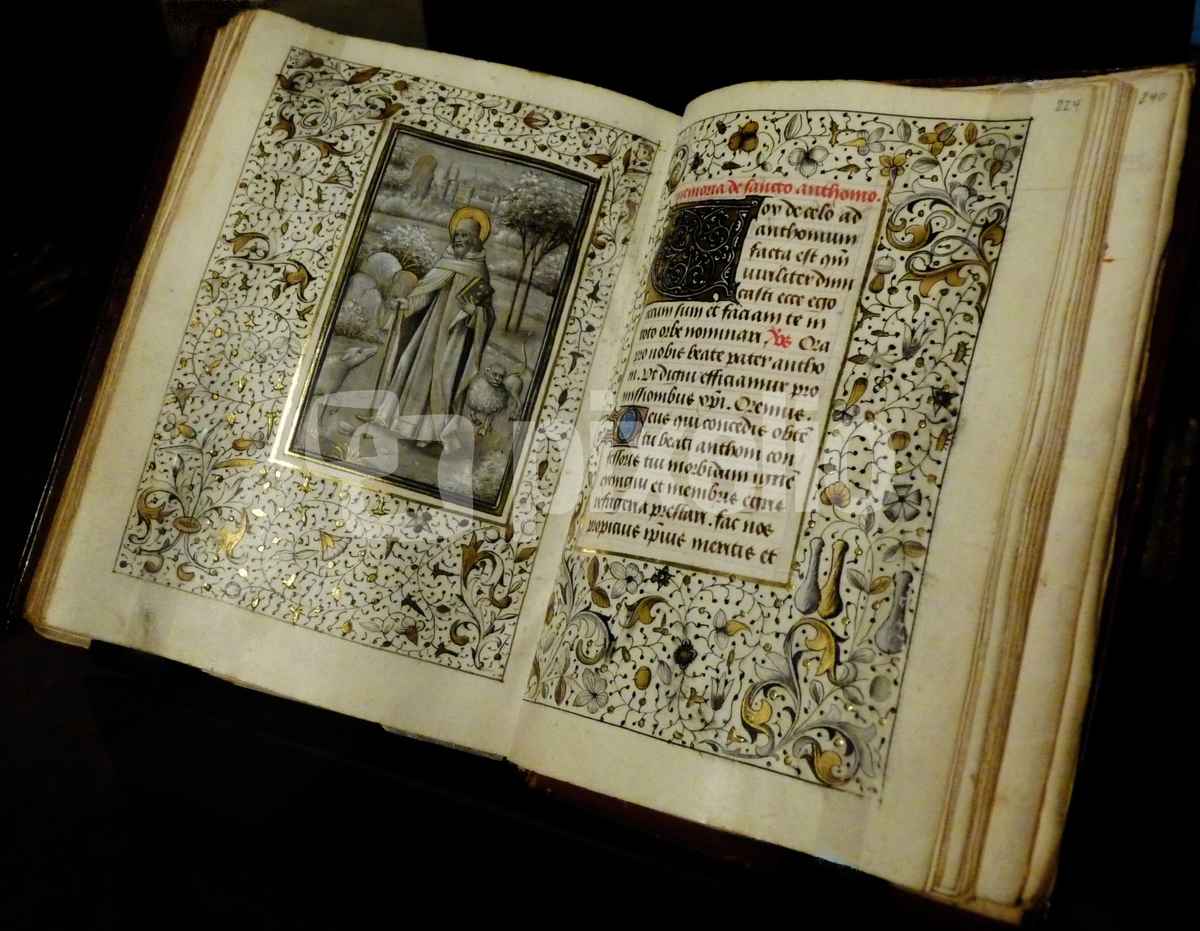 224
240
memoria de sancto anthonio.
Vox de celo ad
anthonium
facta est qm̄
viriliter dimi
casti ecce ego
tecum sum et faciam te in
toto orbe nominari. Vs̄ Ora
pro nobis beate pater antho
ni. Vt digni efficiamur pro
missionibus xp̄i. Oremus.
Deus qui concedis obtē
tu beati anthonii con
fessoris tui morbidum ignē
extingui et membris egris
refrigeria prestari. fac nos
propicius ip̄ius meritis et
pixta